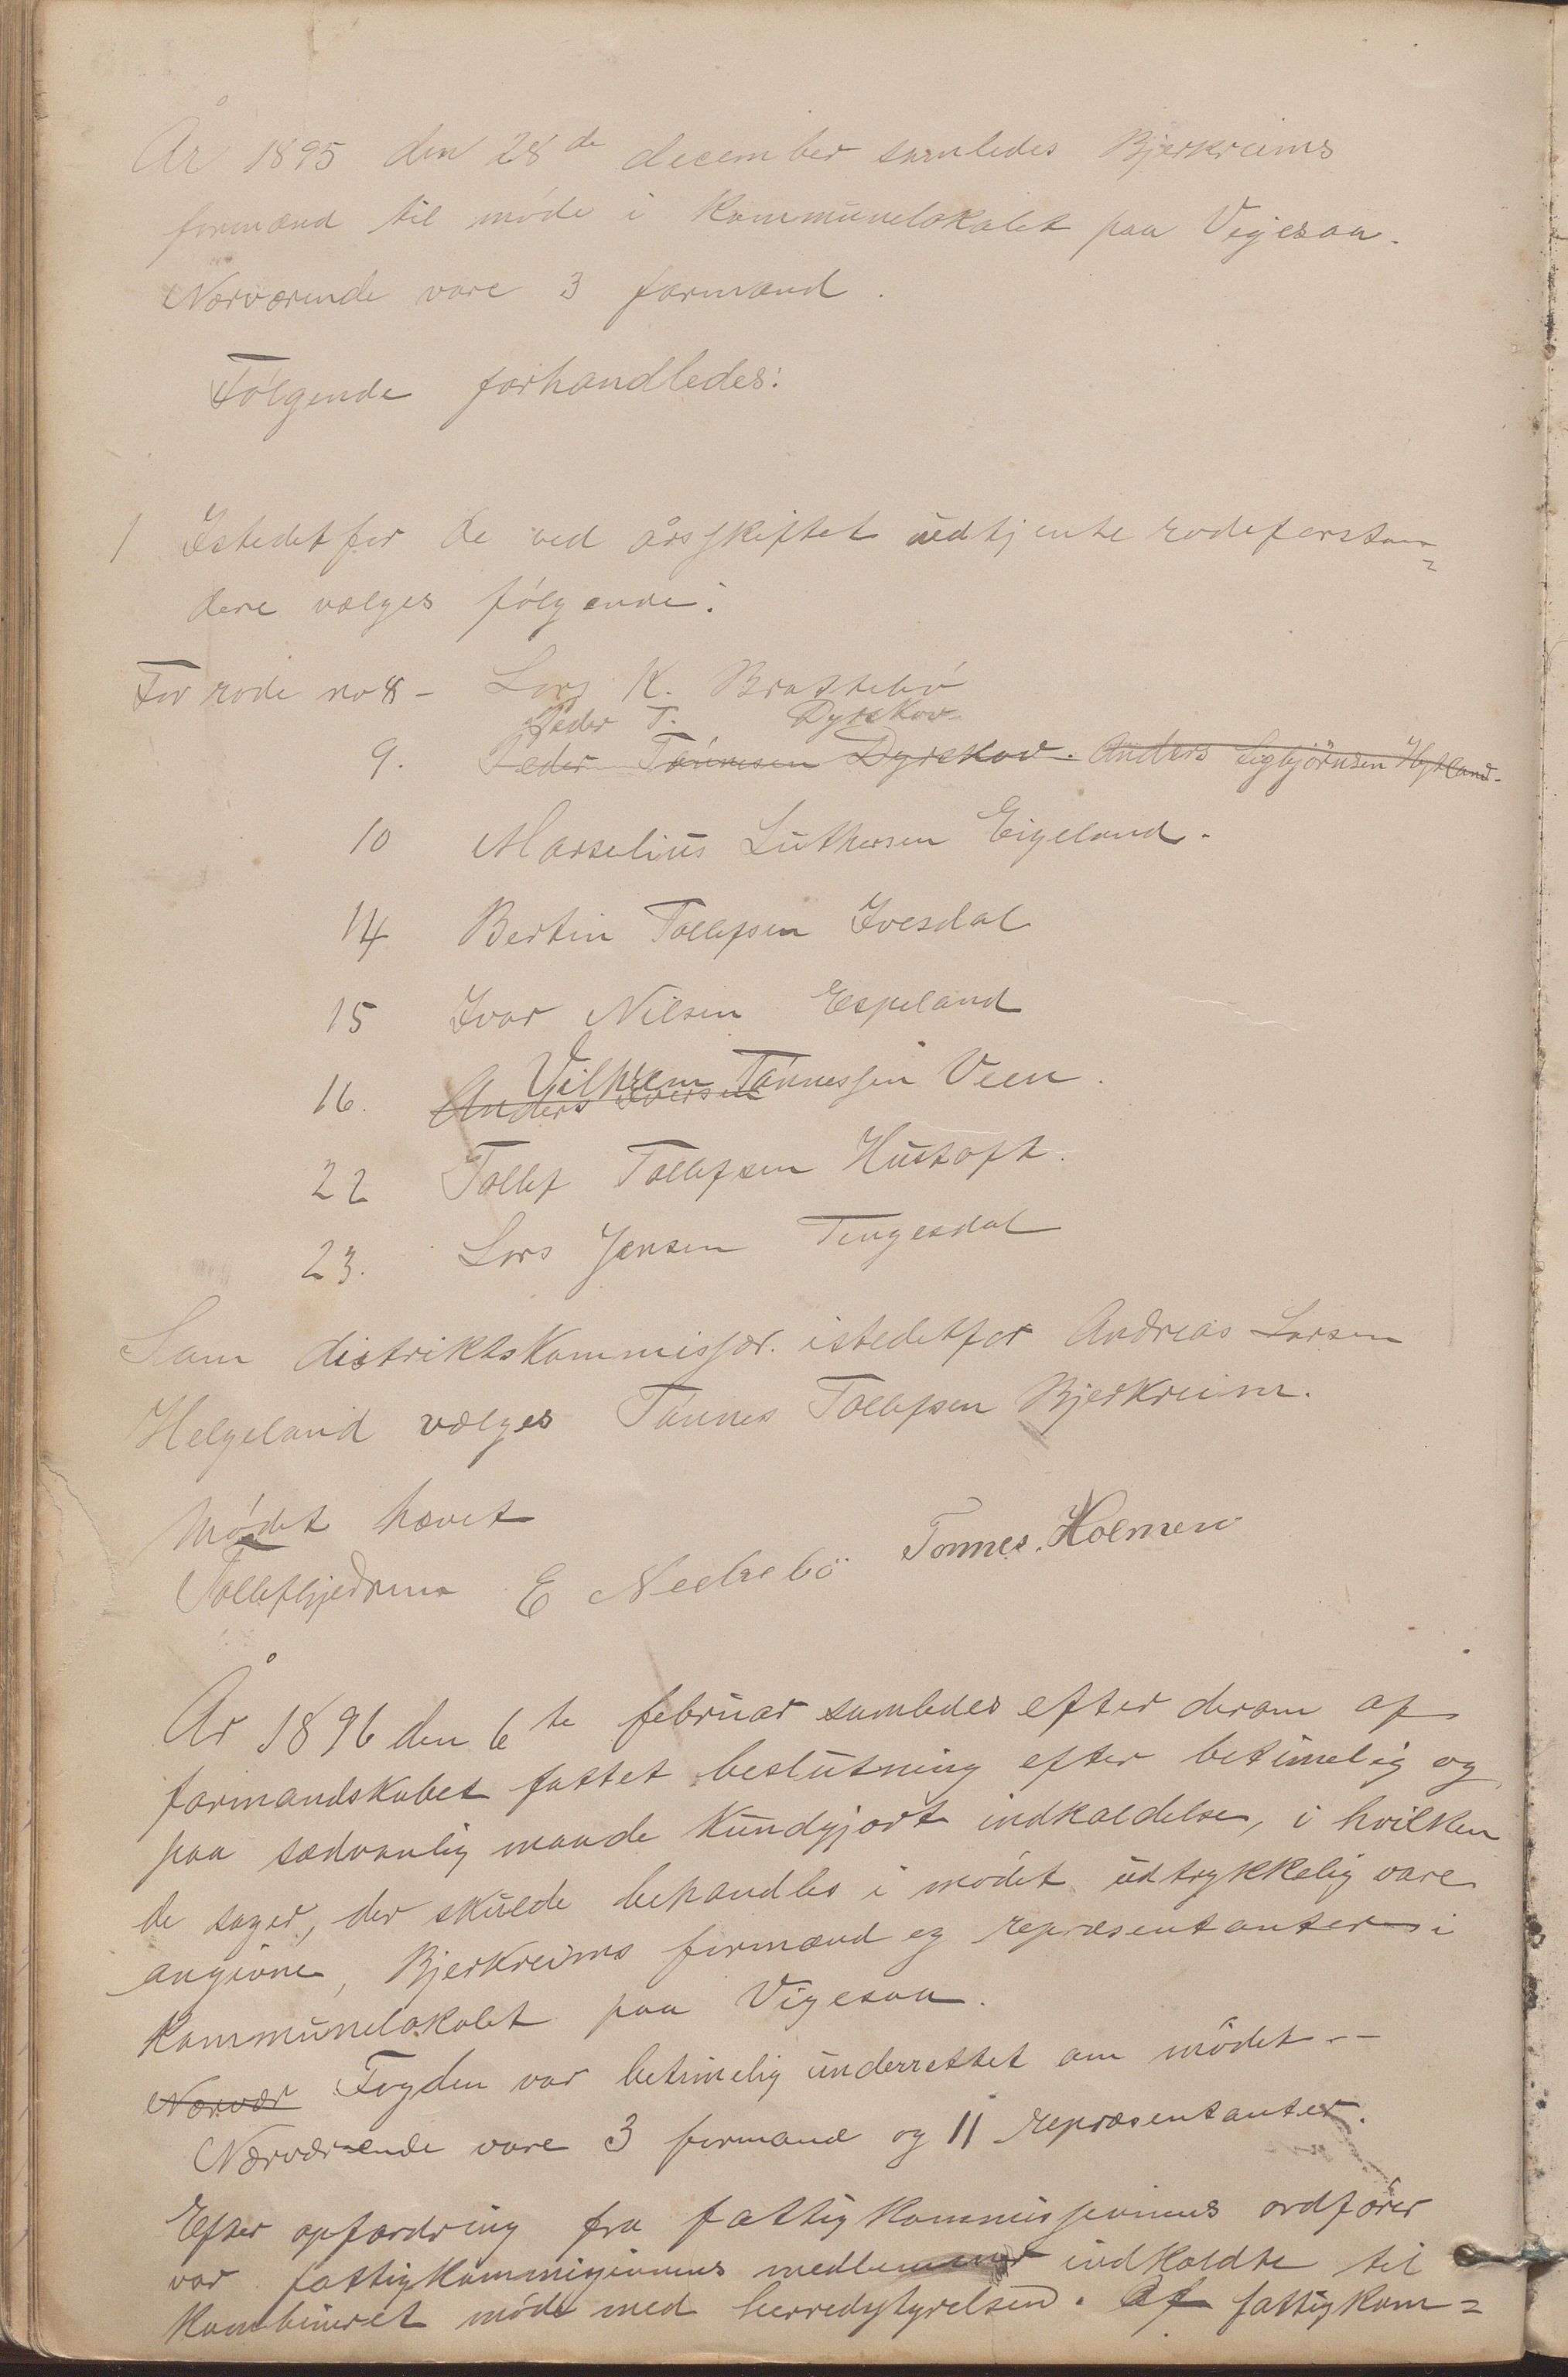 År 1895 den 28de december samledes Bjerkreims
formænd til møde i kommunelokalet paa Vigesaa.
Nærværende vare 3 formænd.
Følgende forhandledes:
1 Istedetfor de ved årsskiftet udtjente rodeforstan=
dere vælges følgende:
For rode no 8 – Lars K. Brattebø
Peder T. Dyrskov
9. Peder Tønnesen Dyrskov. Anders Sigbjørnsen Hytland.
10 Marselius Luthersen Eigeland.
14 Bertin Tollefsen Ivesdal
15 Ivar Nilsen Espeland
Vilhlem Tønnessen Veen.
16. Anders Iversen
22 Tollef Tollefsen Hustoft.
23. Lars Jansen Tengesdal
Som distriktskommissær istedetfor Andreas Larsen
Helgeland vælges Tønnes Tollefsen Bjerkreim.
Mødet hævet
E Nedrebö Tønnes. Holmen
År 1896 den 6te februar samledes efter derom af
formandskabet fattet beslutning efter betimelig og
paa sædvanlig maade kundgjort indkaldelse, i hvilken
de sager, der skulde behandles i mødet udtrykkelig vare
angivne, Bjerkreims formænd og repræsentanter i
kommunelokalet paa Vigesaa.
Nærvær Fogden var betimelig underrettet om mødet. –
Nærværende vare 3 formænd og 11 repræsentanter.
Efter opfordring fra fattigkommissjonens ordfører
var fattigkommisjonens medlemmer indkaldte til
kombineret møde med herredsstyrelsen. Af fattigkom=